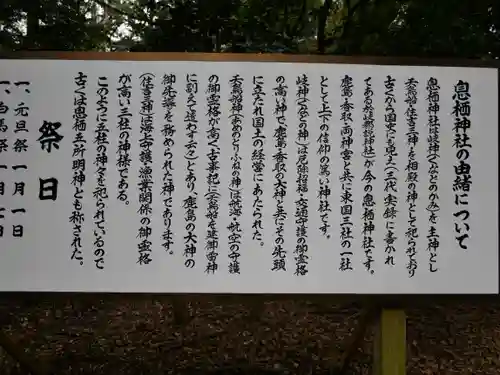 息栖神社の由緒について
息栖神社は岐神(ふなどのかみ)を主神とし
天鳥船神住吉三神を相殿の神として祀られており
古さから国史にも見え(三代実録に書かれ
てある於岐都説神社)が今の息栖神社です。
鹿島・香取両神宮と共に東国三社の一社
として上下の信仰の篤い神社です。
岐神(ふなどの神)は厄除招福・交通守護の御霊格
の高い神で、鹿島香取の大神と共にその先頭
に立たれ国土の経営にあたられた。
天鳥船神(あめのとりふねの神)は航海・航空の守護
の御霊格が高く古事記に(天鳥船を建御雷神
に副えて遣わす云々)とあり、鹿島の大神の
御先導を務められた神であります。
(住吉三神)は海上守護、漁業関係の御霊格
が高い三柱の神様である。
このように五柱の神々を祀られているので
古くは息栖五所明神とも称された。
祭日
一、元旦祭 一月一日
一、白馬祭 一月七日